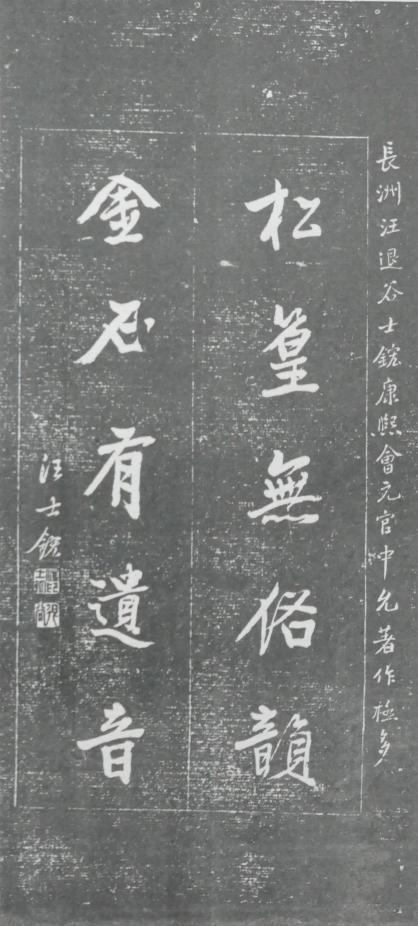 長洲汪退谷士鋐康熙會元官中允著作極多
松篁無俗韻
金石有遺音
汪士鋐